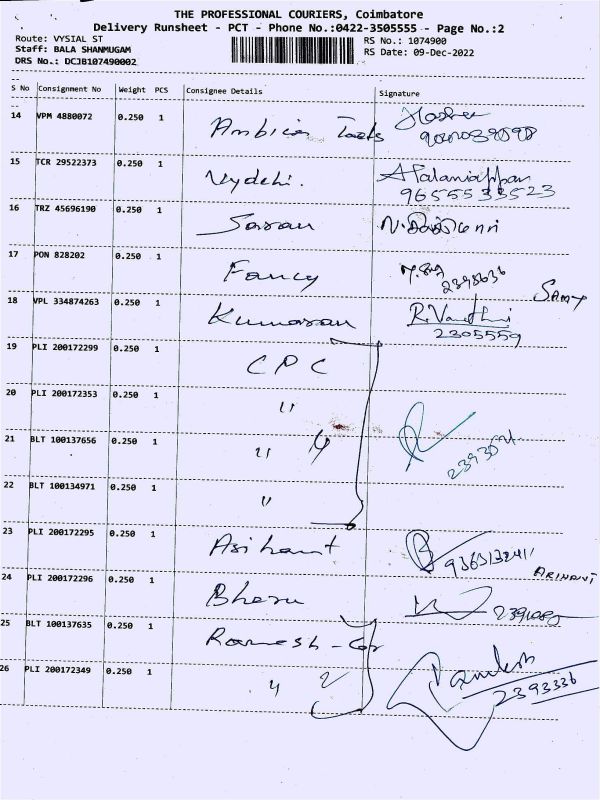 THE PROFESSIONAL COURIERS, Coimbatore
Delivery Runsheet - PCT - Phone No.:0422-3505555 - Page No.:2
Route: VYSIAL ST RS No.: 1074900
Staff: BALA SHANMUGAM RS Date: 09-Dec-2022
DRS No.: DCJB107490002
S No Consignment No Weight PCS Consignee Details Signature
14 VPM 4880072 0.250 1 Ambica Tools
15 TCR 29522373 0.250 1 Vydehi. A Palaniappan
9655533523
16 TRZ 45696190 0.250 1 Saravan
17 PON 828202 0.250 1 Fancy 2398636
Samy
18 VPL 334874263 0.250 1 Kumaran R. Vanthni
2305559
19 PLI 200172299 0.250 1 CPC
20 PLI 200172353 0.250 1 "
21 BLT 100137656 0.250 1 " 4
22 BLT 100134971 0.250 1 "
23 PLI 200172295 0.250 1 Arihant
ARIHANT
24 PLI 200172296 0.250 1 Bheru
25 BLT 100137635 0.250 1 Ramesh - Co
26 PLI 200172349 0.250 1 " 2 Ramesh
2393336